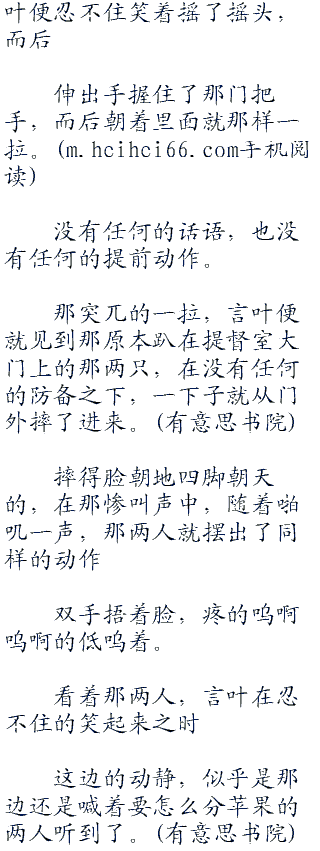 叶便忍不住笑着摇了摇头，
而后
伸出手握住了那门把
手，而后朝着里面就那样一
拉。(m.hcihci66.com手机阅
读)
没有任何的话语，也没
有任何的提前动作。
那突兀的一拉，言叶便
就见到那原本趴在提督室大
门上的那两只，在没有任何
的防备之下，一下子就从门
外摔了进来。(有意思书院)
摔得脸朝地四脚朝天
的，在那惨叫声中，随着啪
叽一声，那两人就摆出了同
样的动作
双手捂着脸，疼的呜啊
呜啊的低呜着。
看着那两人，言叶在忍
不住的笑起来之时
这边的动静，似乎是那
边还是喊着要怎么分苹果的
两人听到了。(有意思书院)